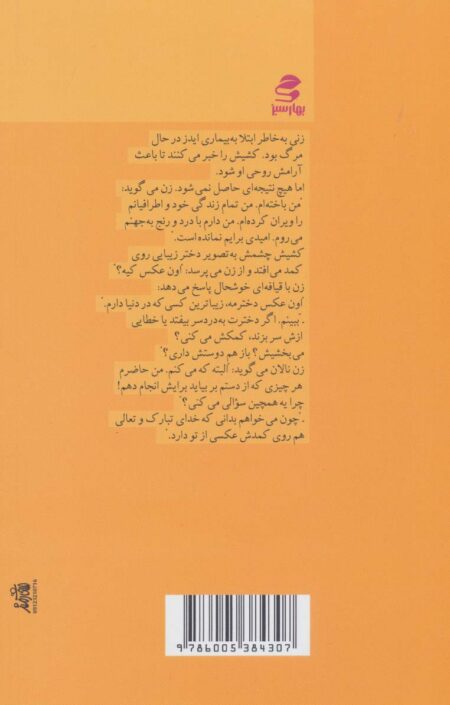 بهار سبز
زنی به‌خاطر ابتلا به‌بیماری ایدز در حال
مرگ بود. کشیش را خبر می کنند تا باعث
آرامش روحی او شود.
اما هیچ نتیجه‌ای حاصل نمی شود. زن می گوید:
"من باخته‌ام. من تمام زندگی خود و اطرافیانم
را ویران کرده‌ام. من دارم با درد و رنج به‌جهنم
می‌روم. امیدی برایم نمانده است."
کشیش چشمش به‌تصویر دختر زیبایی روی
کمد می‌افتد و از زن می پرسد: "اون عکس کیه؟"
زن با قیافه‌ای خوشحال پاسخ می‌دهد:
"اون عکس دخترمه، زیباترین کسی که در دنیا دارم."
ـ "ببینم. اگر دخترت به‌دردسر بیفتد یا خطایی
ازش سر بزند، کمکش می کنی؟
می‌بخشیش؟ باز هم دوستش داری؟"
زن نالان می‌گوید: "البته که می کنم. من حاضرم
هر چیزی که از دستم بر بیاید برایش انجام دهم!
چرا یه همچین سؤالی می کنی؟"
ـ "چون می خواهم بدانی که خدای تبارک و تعالی
هم روی کمدش عکسی از تو دارد."
9 786005 384307